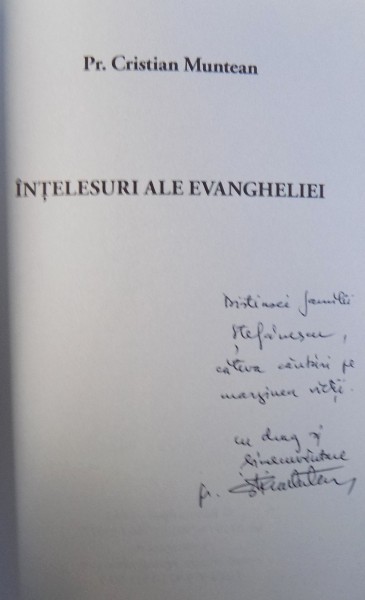 Pr. Cristian Muntean
ÎNȚELESURI ALE EVANGHELIEI
Distinsei familii
Ștefănescu,
câteva căutări pe
marginea vieții.
cu drag și
binecuvântare
pr.